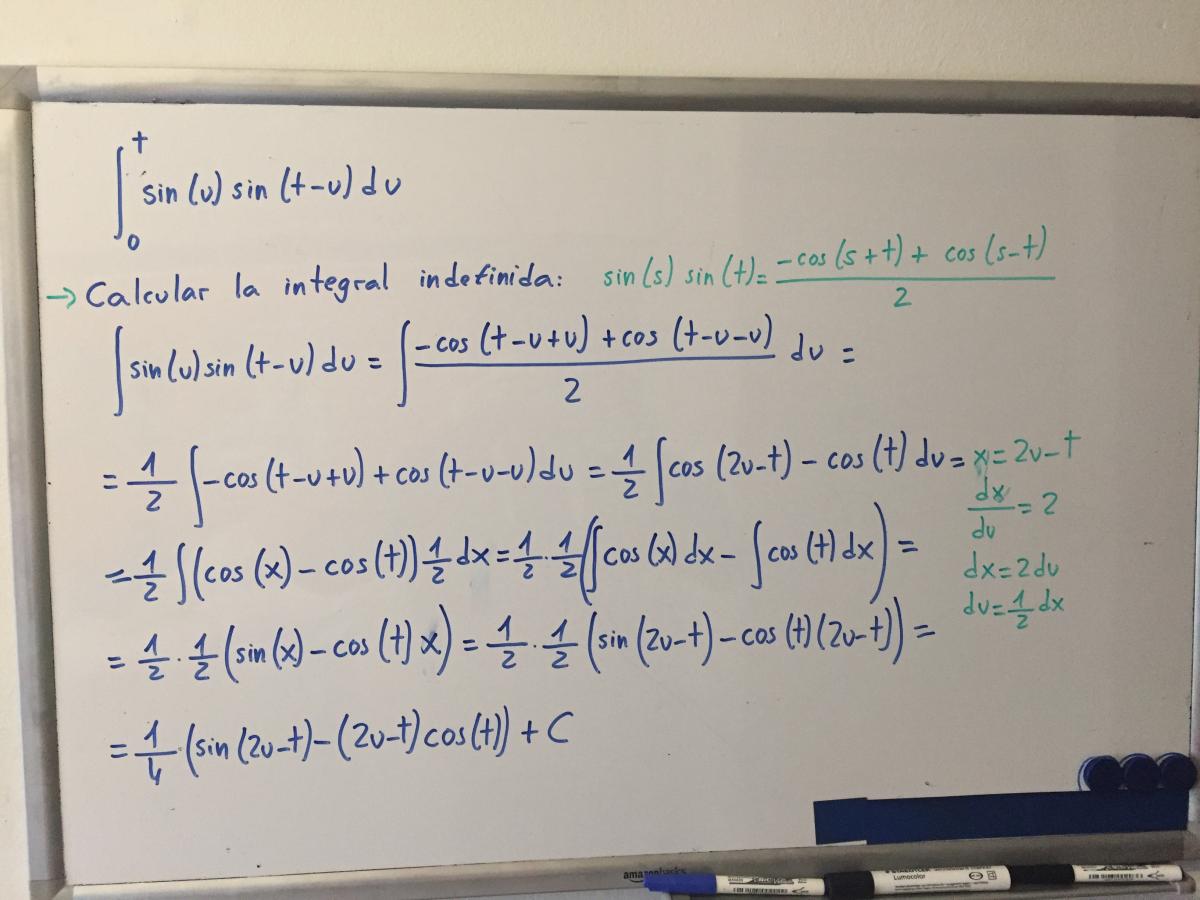 ∫₀ᵗ sin (u) sin (t-u) du
→ Calcular la integral indefinida: sin(s) sin(t) = (-cos(s+t) + cos(s-t))/2
∫ sin(u) sin(t-u) du = ∫ (-cos(t-u+u) + cos(t-u-u))/2 du =
= 1/2 ∫ -cos(t-u+u) + cos(t-u-u) du = 1/2 ∫ cos(2u-t) - cos(t) du = x = 2u-t
dx/du = 2
= 1/2 ∫ (cos(x) - cos(t)) 1/2 dx = 1/2 · 1/2 (∫ cos(x) dx - ∫ cos(t) dx) =
dx = 2du
du = 1/2 dx
= 1/2 · 1/2 (sin(x) - cos(t) x) = 1/2 · 1/2 (sin(2u-t) - cos(t)(2u-t)) =
= 1/4 · (sin(2u-t) - (2u-t) cos(t)) + C
amazonbasics
STAEDTLER
Lumocolor